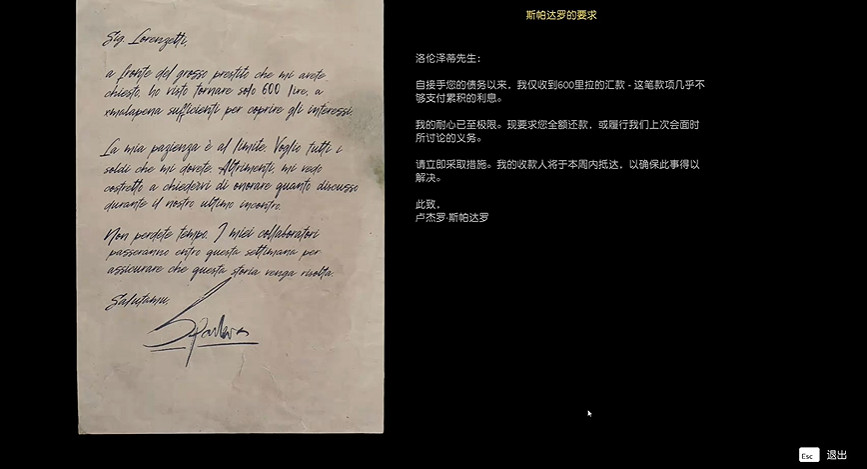 Sig. Lorenzetti,
a fronte del grosso prestito che mi avete
chiesto, ho visto tornare solo 600 lire, a
xmalapena sufficienti per coprire gli interessi.
La mia pazienza è al limite. Voglio tutti i
soldi che mi dovete. Altrimenti, mi vedo
costretto a chiedervi di onorare quanto discusso
durante il nostro ultimo incontro.
Non perdete tempo. I miei collaboratori
passeranno entro questa settimana per
assicurare che questa storia venga risolta.
Salutamu,
Spadaro
斯帕达罗的要求
洛伦泽蒂先生：
自接手您的债务以来，我仅收到600里拉的汇款 - 这笔款项几乎不
够支付累积的利息。
我的耐心已至极限。现要求您全额还款，或履行我们上次会面时
所讨论的义务。
请立即采取措施。我的收款人将于本周内抵达，以确保此事得以
解决。
此致，
卢杰罗·斯帕达罗
Esc 退出